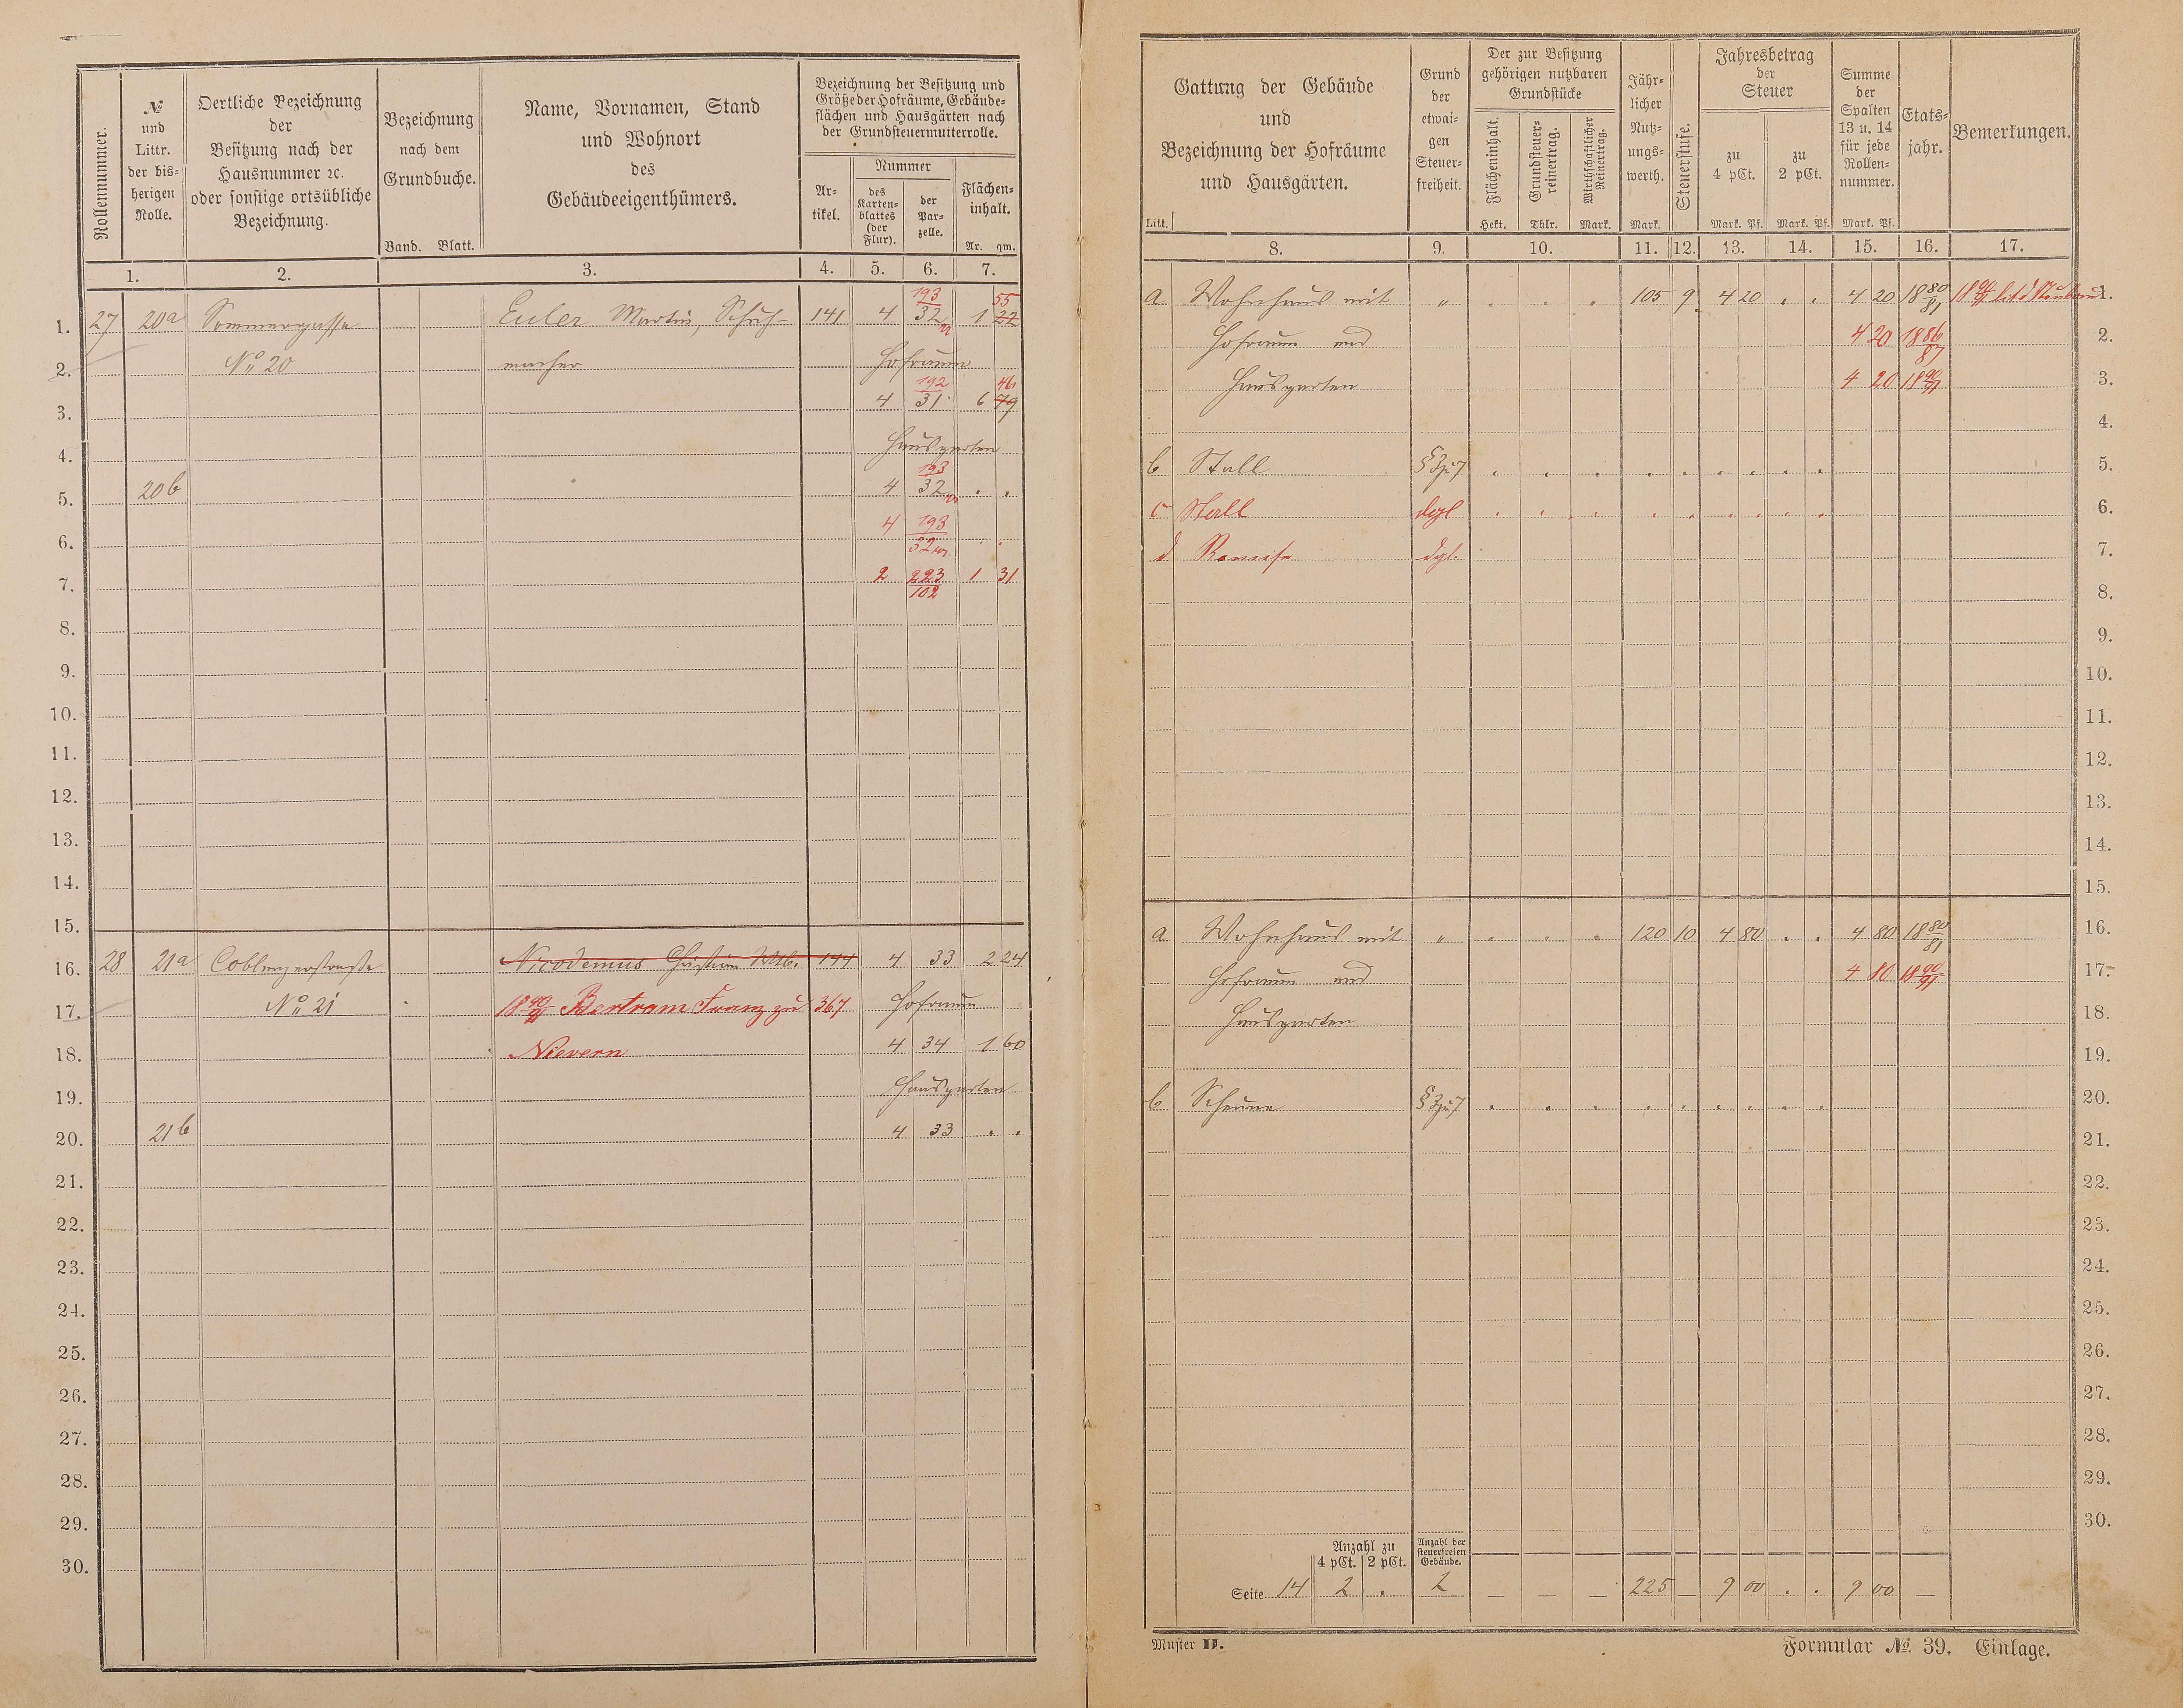 Rollennummer.
№ und Littr. der bis- herigen Rolle.
Oertliche Bezeichnung der Besitzung nach der Hausnummer ꝛc. oder sonstige ortsübliche Bezeichnung.
Bezeichnung nach dem Grundbuche.
Band. Blatt.
Name, Vornamen, Stand und Wohnort des Gebäudeeigenthümers.
Bezeichnung der Besitzung und Größe der Hofräume, Gebäude- flächen und Hausgärten nach der Grundsteuermutterrolle.
Ar- tikel.
Nummer
des Karten- blattes (der Flur).
der Par- zelle.
Flächen- inhalt.
Ar. qm.
1. 2. 3. 4. 5. 6. 7.
193 55
1. 27 20a Sommergasse Euler Martin, Schuh- 141 4 32 1 22
2. No 20 macher Hofraum
192 46
3. 4 31 6 79
4. Hausgarten
193
5. 20b 4 32 . .
6. 4 193 . .
32
7. 2 223 1 31
102
8.
9.
10.
11.
12.
13.
14.
15.
16. 28 21a Coblenzerstraße Nicodemus Christian 144 4 33 2 24
17. No 21 1890/91 Bertram Franz zu 367 Hofraum
18. Nievern 4 34 1 60
19. Hausgarten
20. 21b 4 33 . .
21.
22.
23.
24.
25.
26.
27.
28.
29.
30.
Gattung der Gebäude und Bezeichnung der Hofräume und Hausgärten.
Litt.
Grund der etwai- gen Steuer- freiheit.
Der zur Besitzung gehörigen nutzbaren Grundstücke
Flächeninhalt. Hekt.
Grundsteuer- reinertrag. Thlr.
Wirthschaftlicher Reinertrag. Mark.
Jähr- licher Nutz- ungs- werth. Mark.
Steuerstufe.
Jahresbetrag der Steuer
zu 4 pCt. Mark. Pf.
zu 2 pCt. Mark. Pf.
Summe der Spalten 13 u. 14 für jede Rollen- nummer. Mark. Pf.
Etats- jahr.
Bemerkungen.
8. 9. 10. 11. 12. 13. 14. 15. 16. 17.
a Wohnhaus mit „ . . . 105 9 4 20 . . 4 20 1880/81 1.
Hofraum und 4 20 1886/87 2.
Hausgarten 4 20 1890/91 3.
4.
b Stall . . . . . . . . . 5.
c Stall dgl . . . . . . . . . 6.
d Remise dgl. 7.
8.
9.
10.
11.
12.
13.
14.
15.
a Wohnhaus mit „ . . . 120 10 4 80 . . 4 80 1880/81 16.
Hofraum und 4 80 1890/91 17.
Hausgarten 18.
19.
b Scheune . . . . . . . . . 20.
21.
22.
23.
24.
25.
26.
27.
28.
29.
30.
Anzahl zu 4 pCt. 2 pCt.
Anzahl der steuerfreien Gebäude.
Seite 14 2 . 2 — — — 225 — 9 00 . . 9 00 —
Muster II.
Formular №. 39. Einlage.